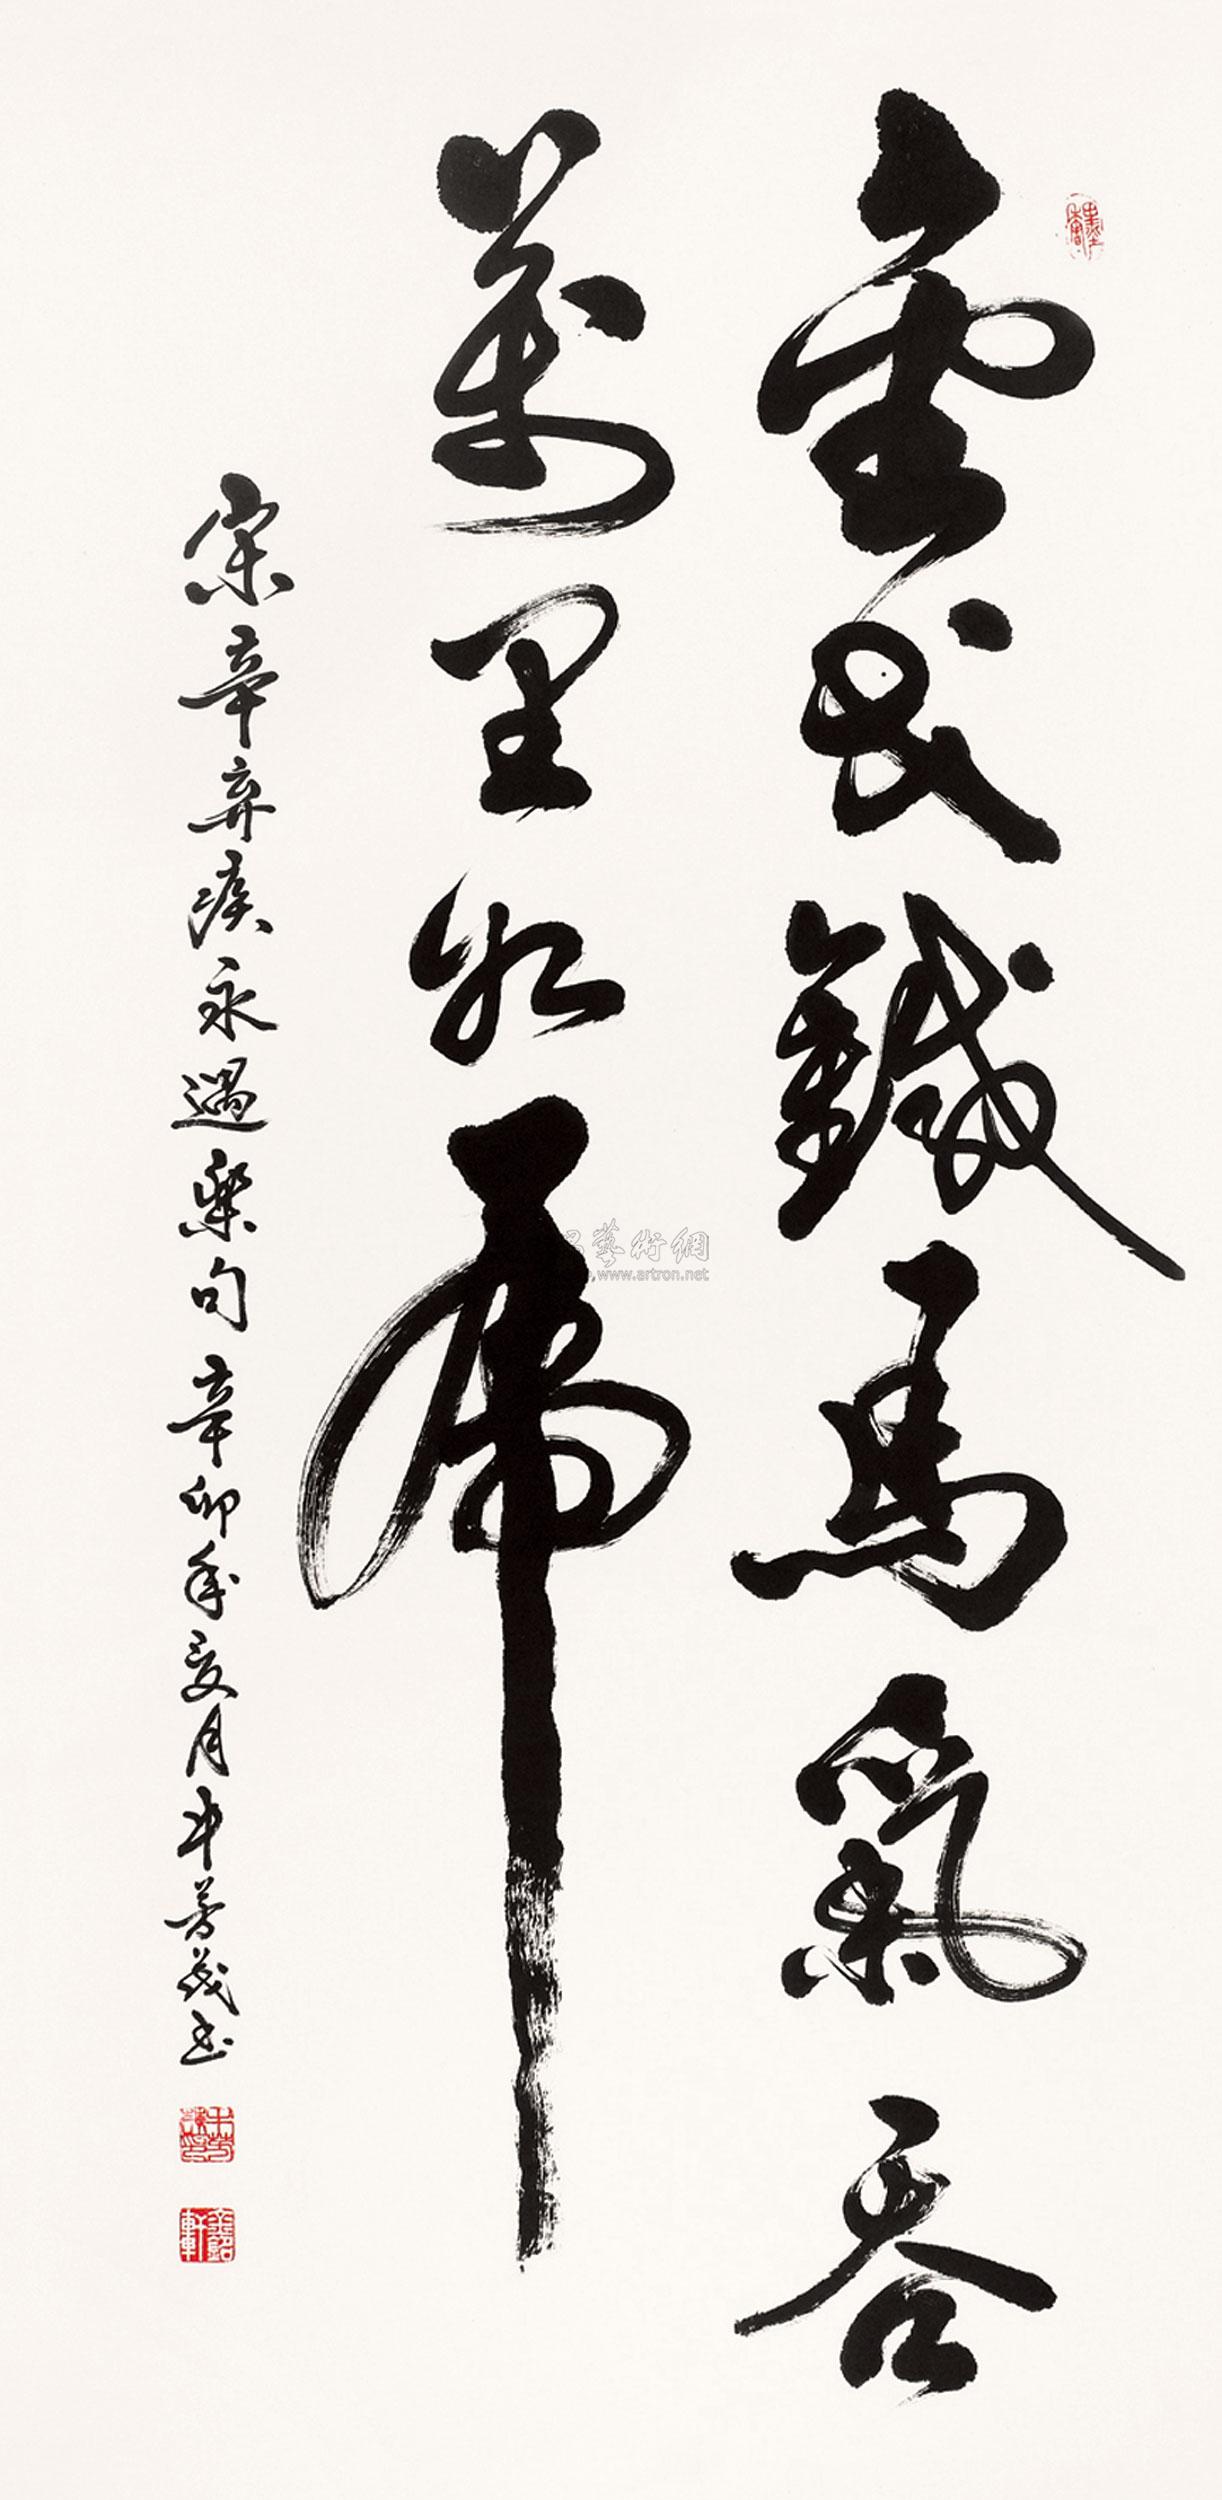 金戈鐵馬氣吞
萬里如虎
宋辛弃疾永遇樂句辛卯年夏月牛普茂书
藝術網
www.artron.net